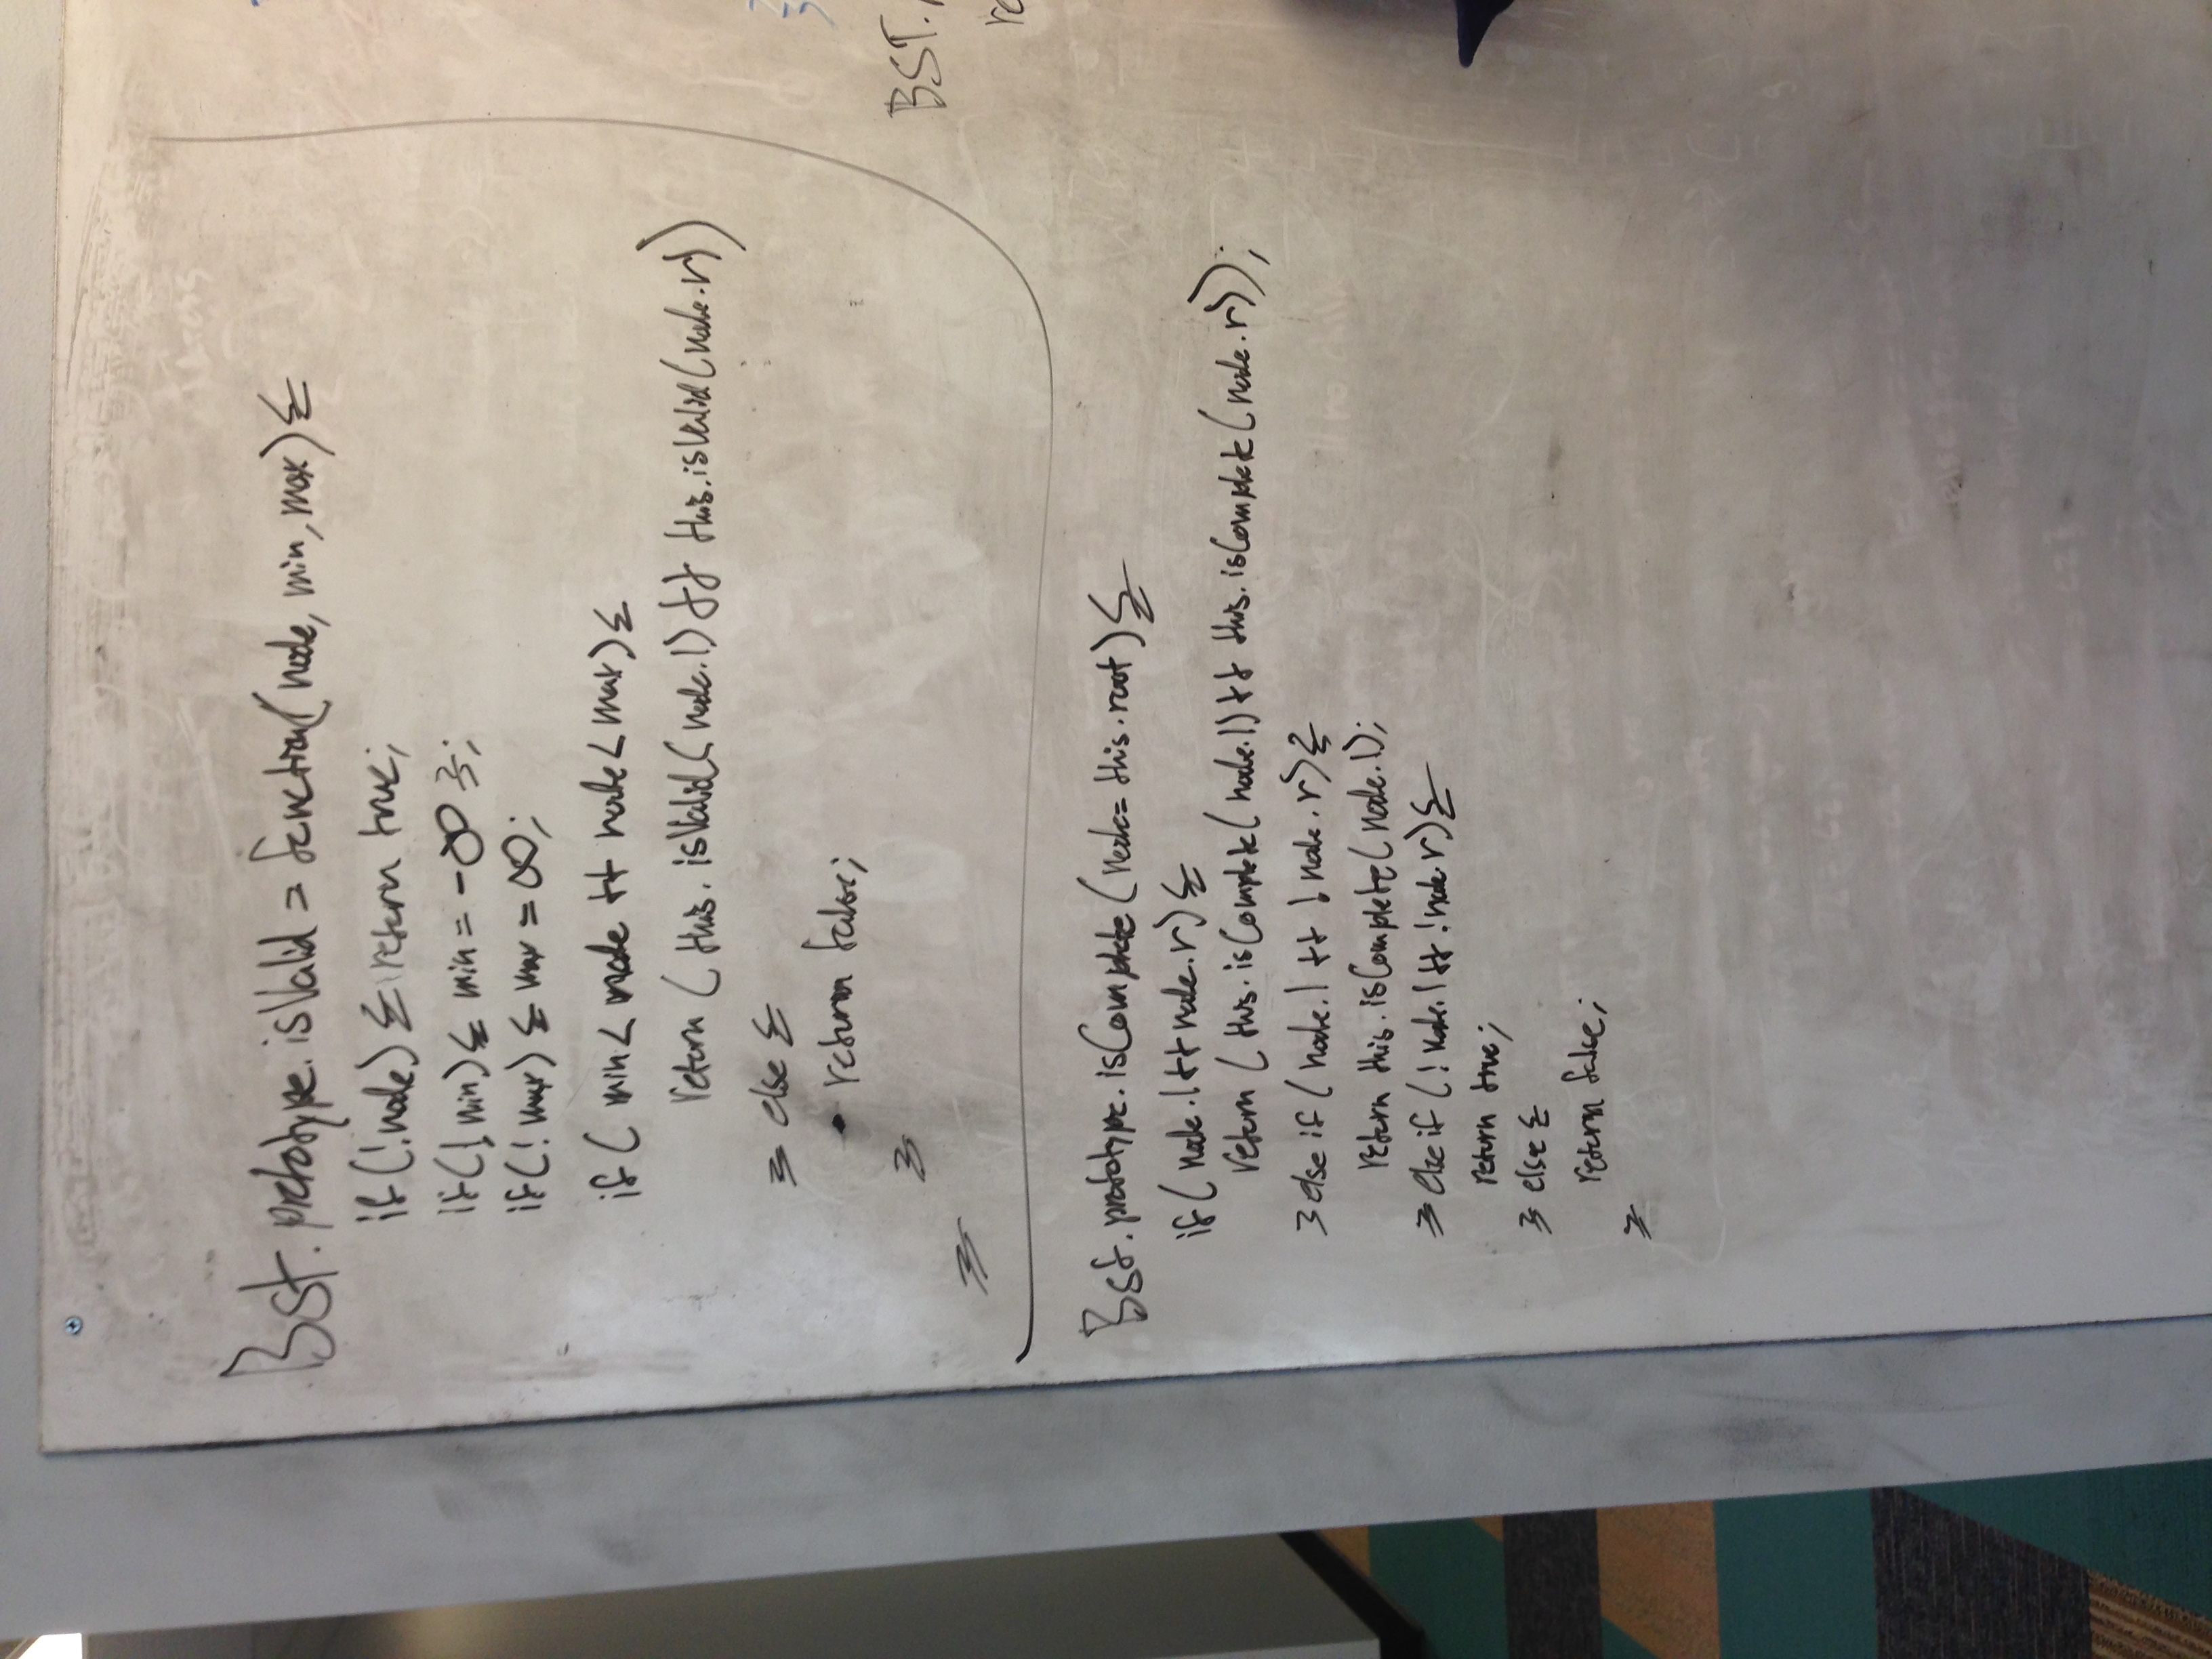 Bst.prototype.isValid = function(node, min, max){
if(!node){ return true;
if(!min){ min = -∞ };
if(!max){ max = ∞;
if( min< node && node< max){
return (this.isValid(node.l) && this.isValid(node.r))
} else {
return false;
}
}
Bst.prototype.isComplete(node=this.root){
if(node.l && node.r){
return (this.isComplete(node.l) && this.isComplete(node.r));
} else if (node.l && !node.r){
return this.isComplete(node.l);
} else if (!node.l && !node.r){
return true;
} else {
return false;
}
BST.
re